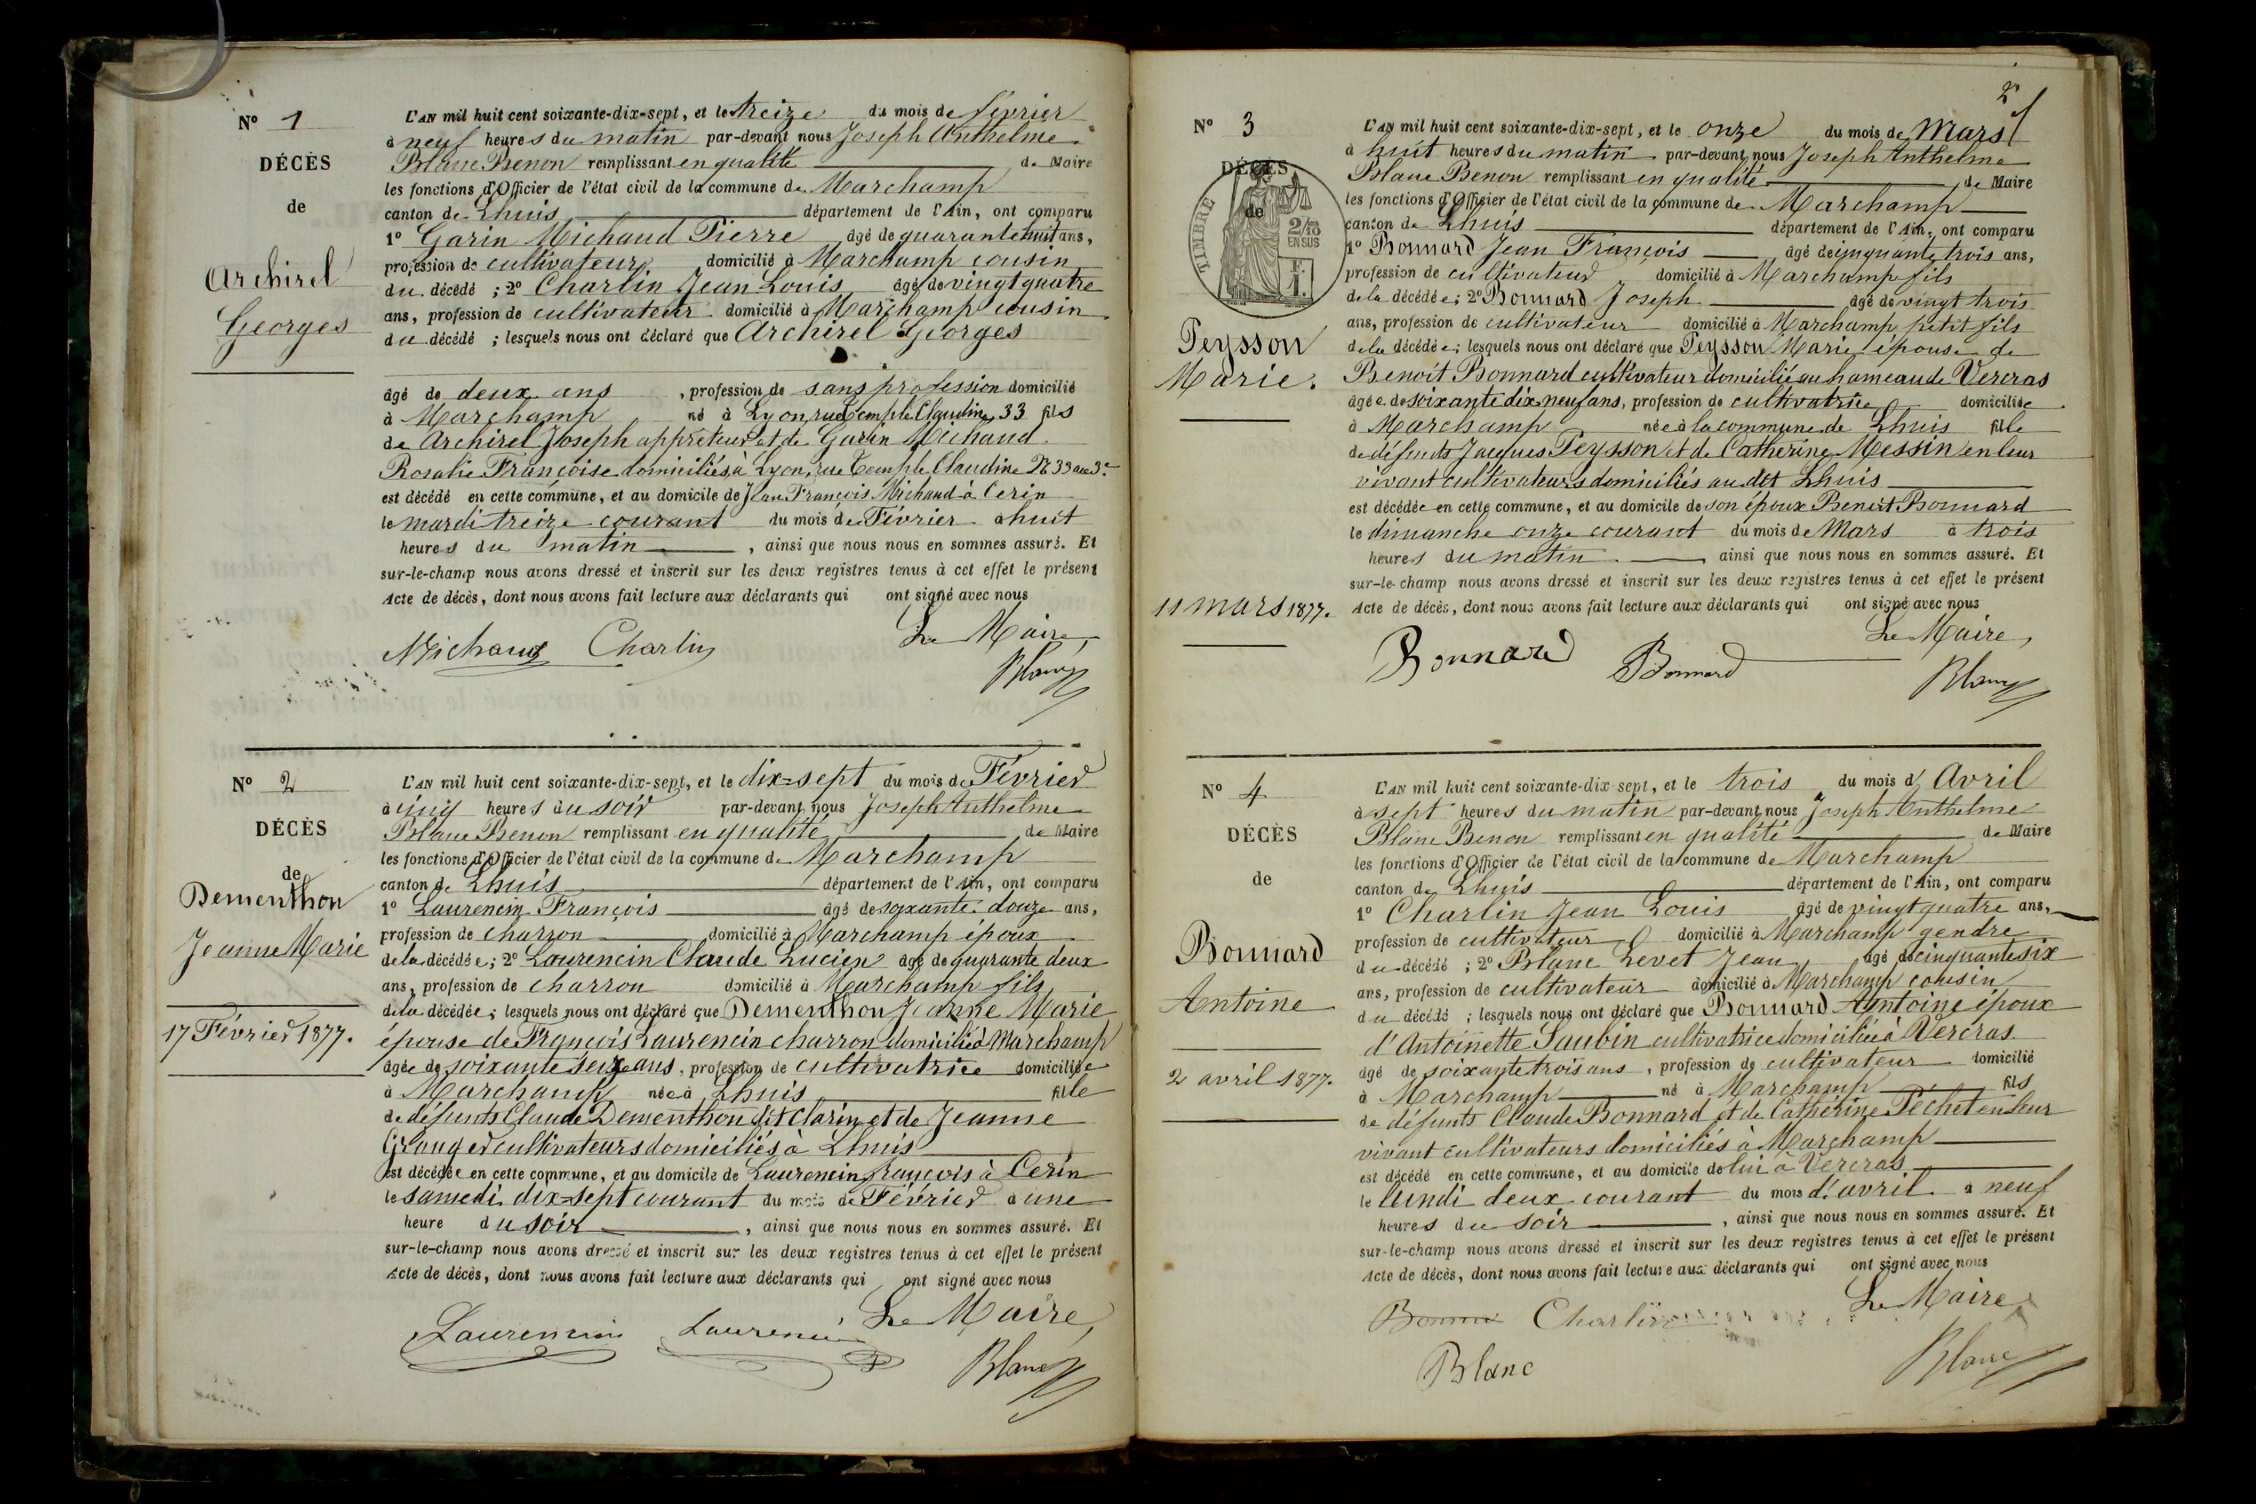 N° 1
DÉCÈS
de
Archirel
Georges
L'AN mil huit cent soixante-dix-sept, et le treize du mois de février
à neuf heures du matin par-devant nous Joseph Anthelme
Blanc Benon remplissant en qualité de Maire
les fonctions d'Officier de l'état civil de la commune de Marchamp
canton de Lhuis département de l'Ain, ont comparu
1° Garin Michaud Pierre âgé de quarante huit ans,
profession de cultivateur domicilié à Marchamp cousin
du décédé ; 2° Charlin Jean Louis âgé de vingt quatre
ans, profession de cultivateur domicilié à Marchamp cousin
du décédé ; lesquels nous ont déclaré que Archirel Georges
âgé de deux ans , profession de sans profession domicilié
à Marchamp né à Lyon, rue Temple Claudine, 33 fils
de Archirel Joseph appreteur et de Garin Michaud
Rosalie Françoise domiciliés à Lyon, rue Temple Claudine N° 33 au 3e
est décédé en cette commune, et au domicile de Jean François Michaud à Cerin
le mardi treize courant du mois de Février à huit
heures du matin , ainsi que nous nous en sommes assuré. Et
sur-le-champ nous avons dressé et inscrit sur les deux registres tenus à cet effet le présent
Acte de décès, dont nous avons fait lecture aux déclarants qui ont signé avec nous
Le Maire,
Michaud Charlin
Blanc
N° 2
DÉCÈS
de
Dementhon
Jeanne Marie
17 Février 1877.
L'AN mil huit cent soixante-dix-sept, et le dix=sept du mois de Février
à cinq heures du soir par-devant nous Joseph Anthelme
Blanc Benon remplissant en qualité de Maire
les fonctions d'Officier de l'état civil de la commune de Marchamp
canton de Lhuis département de l'Ain, ont comparu
1° Laurencin François âgé de soixante. douze ans,
profession de charron domicilié à Marchamp époux
de la décédée ; 2° Laurencin Claude Lucien âgé de quarante deux
ans, profession de charron domicilié à Marchamp fils
de la décédée ; lesquels nous ont déclaré que Dementhon Jeanne Marie
épouse de François Laurencin charron domicilié à Marchamp
âgée de soixante seize ans, profession de cultivatrice domiciliée
à Marchamp née à Lhuis fille
de défunts Claude Dementhon dit Clarin et de Jeanne
cultivateurs domiciliés à Lhuis
est décédée en cette commune, et au domicile de Laurencin françois à Cerin
le samedi dix=sept courant du mois de Février à une
heure du soir , ainsi que nous nous en sommes assuré. Et
sur-le-champ nous avons dressé et inscrit sur les deux registres tenus à cet effet le présent
Acte de décès, dont nous avons fait lecture aux déclarants qui ont signé avec nous
Le Maire,
Laurencin Laurencin
Blanc
2e
N° 3
DÉCÈS
de
TIMBRE
2/10
EN SUS
Peysson
Marie.
11 mars 1877.
L'AN mil huit cent soixante-dix-sept, et le onze du mois de Mars
à huit heures du matin par-devant nous Joseph Anthelme
Blanc Benon remplissant en qualité de Maire
les fonctions d'Officier de l'état civil de la commune de Marchamp
canton de Lhuis département de l'Ain, ont comparu
1° Bonnard Jean François âgé de cinquante trois ans,
profession de cultivateur domicilié à Marchamp fils
de la décédée ; 2° Bonnard Joseph âgé de vingt trois
ans, profession de cultivateur domicilié à Marchamp petit fils
de la décédée ; lesquels nous ont déclaré que Peysson Marie épouse de
Benoît Bonnard cultivateur domicilié au hameau de Vercras
âgée de soixante dix neuf ans, profession de cultivatrice domiciliée
à Marchamp née à la commune de Lhuis fille
de défunts Jacques Peysson et de Catherine Messin en leur
vivant cultivateurs domiciliés au dit Lhuis
est décédée en cette commune, et au domicile de son époux Benoît Bonnard
le dimanche onze courant du mois de Mars à trois
heures du matin ainsi que nous nous en sommes assuré. Et
sur-le-champ nous avons dressé et inscrit sur les deux registres tenus à cet effet le présent
Acte de décès, dont nous avons fait lecture aux déclarants qui ont signé avec nous
Le Maire,
Bonnard Bonnard
Blanc
N° 4
DÉCÈS
de
Bonnard
Antoine
2 avril 1877.
L'AN mil huit cent soixante-dix sept, et le trois du mois d' Avril
à sept heures du matin par-devant nous Joseph Anthelme
Blanc Benon remplissant en qualité de Maire
les fonctions d'Officier de l'état civil de la commune de Marchamp
canton de Lhuis département de l'Ain, ont comparu
1° Charlin Jean Louis âgé de vingt quatre ans,
profession de cultivateur domicilié à Marchamp gendre
du décédé ; 2° Blanc Levet Jean âgé de cinquante six
ans, profession de cultivateur domicilié à Marchamp cousin
du décédé ; lesquels nous ont déclaré que Bonnard Antoine époux
d'Antoinette Saubin cultivatrice domiciliée à Vercras.
âgé de soixante trois ans , profession de cultivateur domicilié
à Marchamp né à Marchamp fils
de défunts Claude Bonnard et de Cathérine Péchet en leur
vivant cultivateurs domiciliés à Marchamp
est décédé en cette commune, et au domicile de lui à Vercras
le lundi deux courant du mois d'avril à neuf
heures du soir , ainsi que nous nous en sommes assuré. Et
sur-le-champ nous avons dressé et inscrit sur les deux registres tenus à cet effet le présent
Acte de décès, dont nous avons fait lecture aux déclarants qui ont signé avec nous
Le Maire,
Charlin
Blanc
Blanc